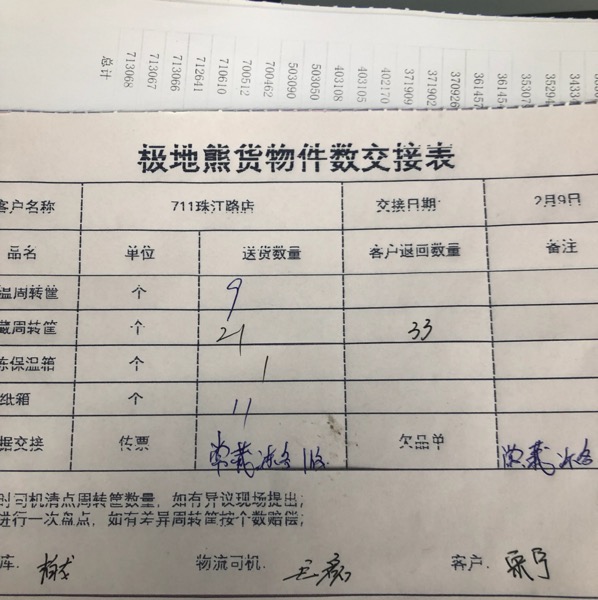 总计
713068
713067
713066
712641
710610
700512
700462
503090
503050
403108
403105
402170
371909
371902
370926
361457
极地熊货物件数交接表
客户名称 711珠江路店 交接日期 2月9日
品名 单位 送货数量 客户退回数量 备注
温周转筐 个 9
藏周转筐 个 21 33
冻保温箱 个 1
纸箱 个 11
据交接 传票 常藏冰各1份 欠品单
时司机清点周转筐数量，如有异议现场提出；
进行一次盘点，如有差异周转筐按个数赔偿；
库： 物流司机： 客户：